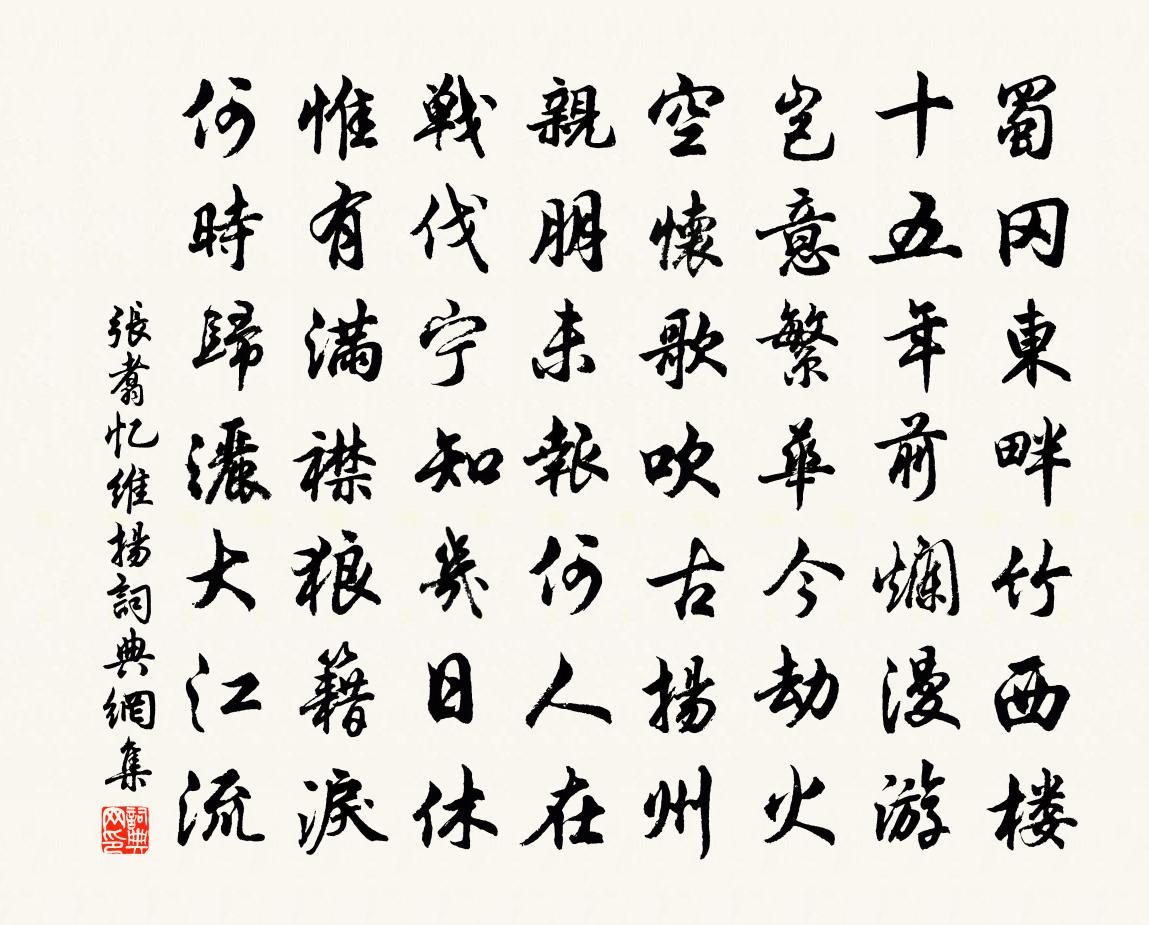 蜀冈東畔竹西楼
十五年前爛漫游
豈意繁華今劫火
空懷歌吹古揚州
親朋未報何人在
戦伐宁知幾日休
惟有滿襟狼籍淚
何時歸灑大江流
張翥忆維揚詞典網集
詞典网印